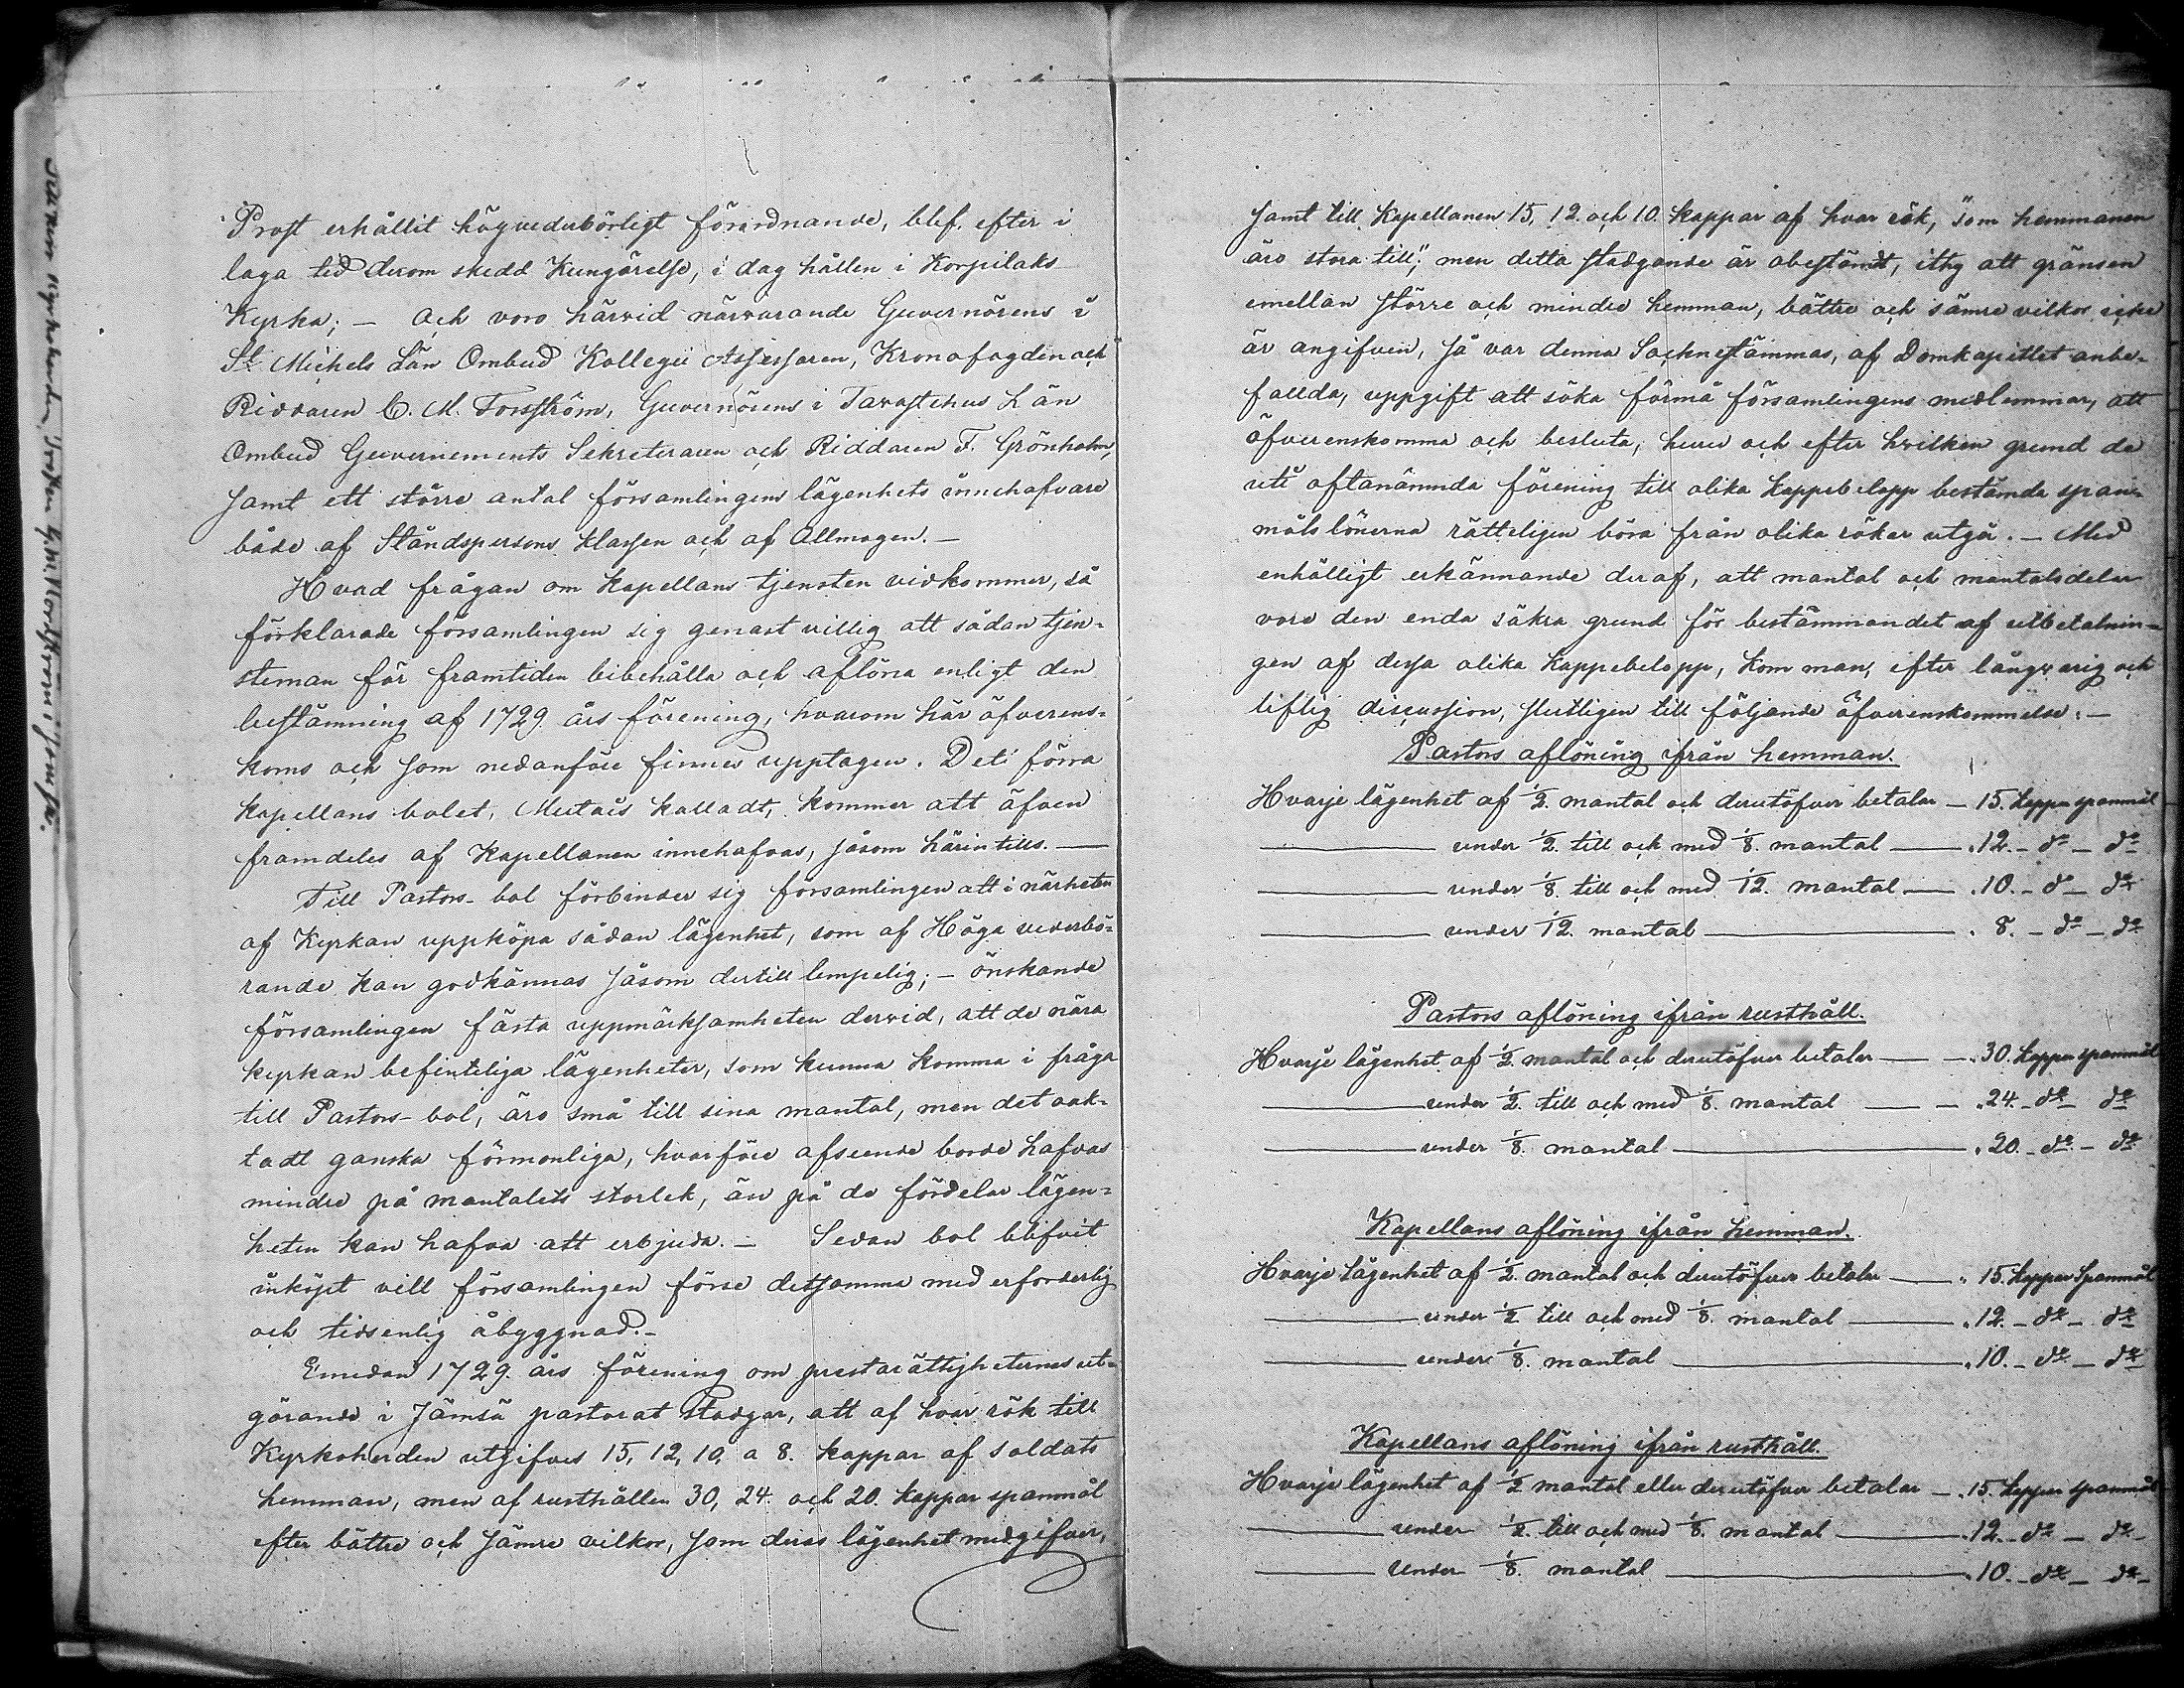 Prost erhållit högvederbörligt förordnande, blef efter i
laga tid derom skedd Kungörelse, i dag hållen i Korpilaks
Kyrka; — Och voro härvid närvarande Guvernörens i
St Michels Län Ombud Kollegii Assessoren, Kronofogden och
Riddaren C. M. Forsström, Guvernörens i Tavastehus Län
Ombud Guvernements Sekreteraren och Riddaren F. Grönholm,
samt ett större antal församlingens lägenhets innehafvare
både af Ståndspersons klassen och af Allmogen. —
Hvad frågan om Kapellans tjensten vidkommer, så
förklarade församlingen sig genast villig att sådan tjen-
steman för framtiden bibehålla och aflöna enligt den
bestämning af 1729 års förening, hvarom här öfverens-
koms och som nedanföre finnes upptagen. Det förra
kapellans bolet, kalladt, kommer att äfven
framdeles af Kapellanen innehafvas, såsom härintills. —
Till Pastors-bol förbinder sig församlingen att i närheten
af Kyrkan uppköpa sådan lägenhet, som af Höga vederbö-
rande kan godkännas såsom dertill lempelig; — önskande
församlingen fästa uppmärksamheten dervid, att de nära
kyrkan befintliga lägenheter, som kunna komma i fråga
till Pastors-bol, äro små till sina mantal, men det oak-
tadt ganska förmonliga, hvarföre afseende borde hafvas
mindre på mantalets storlek, än på de fördelar lägen-
heten kan hafva att erbjuda. — Sedan bol blifvit
inköpt vill församlingen förse detsamma med erforderlig
och tidsenlig åbyggnad. —
Emedan 1729 års förening om prestarättigheternes ut-
görande i Jämsä pastorat stadgar, att af hvar rök till
Kyrkoherden utgifves 15, 12, 10, a 8. kappar af soldats
hemman, men af rusthållen 30, 24. och 20. kappar spanmål
efter bättre och sämre vilkor, som deras lägenhet medgifver,
samt till Kapellanen 15, 12 och 10. kappar af hvar rök, "som hemmanen
äro stora till"; men detta stadgande är obestämdt, ithy att gränsen
emellan större och mindre hemman, bättre och sämre vilkor icke
är angifven, så var denna Sochnestämmas, af Domkapitlet anbe-
fallda, uppgift att söka förmå församlingens medlemmar, att
öfverenskomma och besluta, huru och efter hvilken grund de
uti oftanämnda förening till olika kappebelopp bestämda span-
målslönerna rätteligen böra från olika rökar utgå. — Med
enhälligt erkännande deraf, att mantal och mantalsdelar
vore den enda säkra grund för bestämmandet af utbetalnin-
gen af dessa olika kappebelopp, kom man, efter långvarig och
liflig discussion, slutligen till följande öfverenskommelse: —
Pastors aflöning ifrån hemman.
Hvarje lägenhet af 1/2. mantal och derutöfver betalar — 15. kappar spanmål
——— under 1/2. till och med 1/8. mantal ——— 12. — do — do
——— under 1/8. till och med 1/12. mantal ——— 10. — do — do
——— under 1/12. mantal ——— 8. — do — do
Pastors aflöning ifrån rusthåll.
Hvarje lägenhet af 1/2. mantal och derutöfver betalar ——— 30. kappar spanmål
——— under 1/2. till och med 1/8. mantal ——— 24. — do — do
——— under 1/8. mantal ——— 20. — do — do
Kapellans aflöning ifrån hemman.
Hvarje lägenhet af 1/2. mantal och derutöfver betalar ——— 15. kappar Spanmål
——— under 1/2 till och med 1/8. mantal ——— 12. — do — do
——— under 1/8. mantal ——— 10. — do — do
Kapellans aflöning ifrån rusthåll.
Hvarje lägenhet af 1/2 mantal eller derutöfver betalar — 15. kappar spanmål
——— under 1/2. till och med 1/8. mantal ——— 12. — do — do
——— under 1/8. mantal ——— 10. — do — do